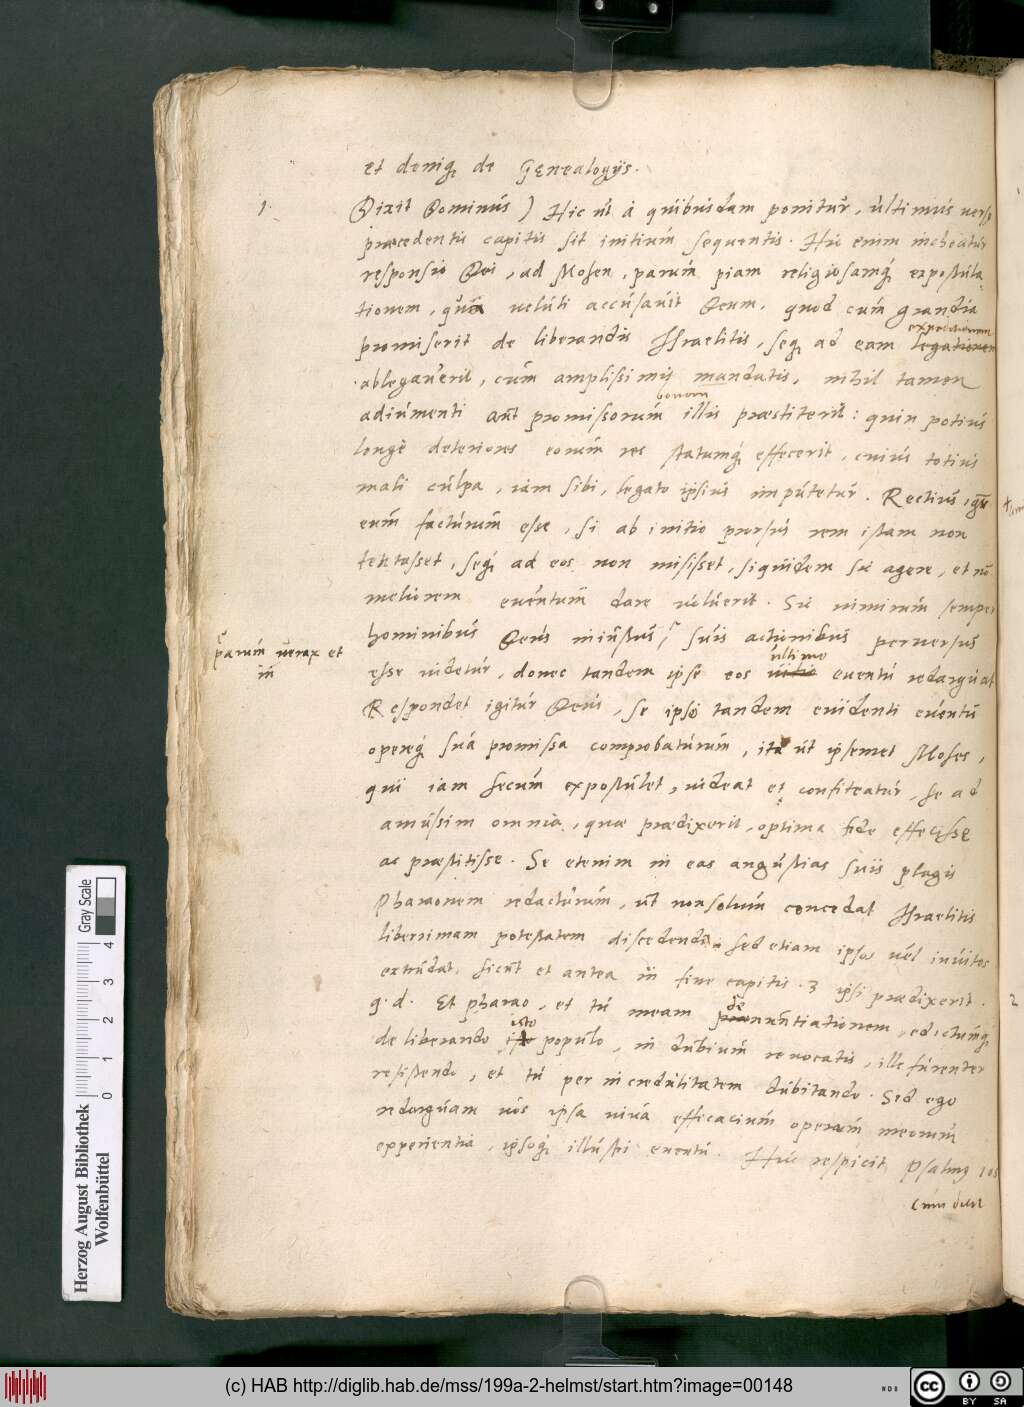 et deniq; de Genealogijs.
1. Dixit Dominus ) Hic ut à quibusdam ponitur, ultimus versꝫ
præcedentis capitis sit initium sequentis. Hic enim inchoatur
responsio Dei, ad Mosen, parum piam religiosamq; expostula
tionem, qua veluti accusavit Deum, quod cum grandia
expeditionem
promiserit de liberandis Israelitis, seq; ad eam legationem
ablegaverit, cum amplissimis mandatis, nihil tamen
bonorum
adiumenti aut promissorum illis præstiterit: quin potius
longè deteriores eorum res statumq; effecerit, cuius totius
mali culpa, iam sibi, legato ipsius imputetur. Rectius igitur
eum facturum esse, si ab initio prorsus rem istam non
tentasset, seq; ad eos non misisset, siquidem sic agere, et nō
meliorem eventum dare voluerit. Sic nimirum semper
hominibus Deus iniustus, suis actionibus perversus
parum verax et
in
ultimo
esse videtur, donec tandem ipse eos eventu redarguat
Respondet igitur Deus, se ipso tandem evidenti eventu
opereq; sua promissa comprobaturum, ita ut ipsemet Moses,
qui iam secum expostulet, videat et confiteatur, se ad
amussim omnia, quæ prædixerit, optima fide effecisse
ac præstitisse. Se etenim in eas angustias suis plagis
Pharaonem redacturum, ut non solum concedat Israelitis
liberrimam potestatem discedendi, sed etiam ipsos vel invitos
extrudat, sicut et antea in fine capitis .3 ipsi prædixerit.
q.d. Et pharao, et tu meam denuntiationem, edictumq;
isto
de liberando populo, in dubium revocatis, ille furenter
resistendo, et tu per incredulitatem dubitando. Sed ego
redarguam vos ipsa viva efficacium operum meorum
experientia, ipsoq; illustri eventu. Huc respicit Psalmꝰ 105
cum dicit
2
Herzog August Bibliothek
Wolfenbüttel
Gray Scale
0 1 2 3 4
(c) HAB http://diglib.hab.de/mss/199a-2-helmst/start.htm?image=00148
cc BY SA